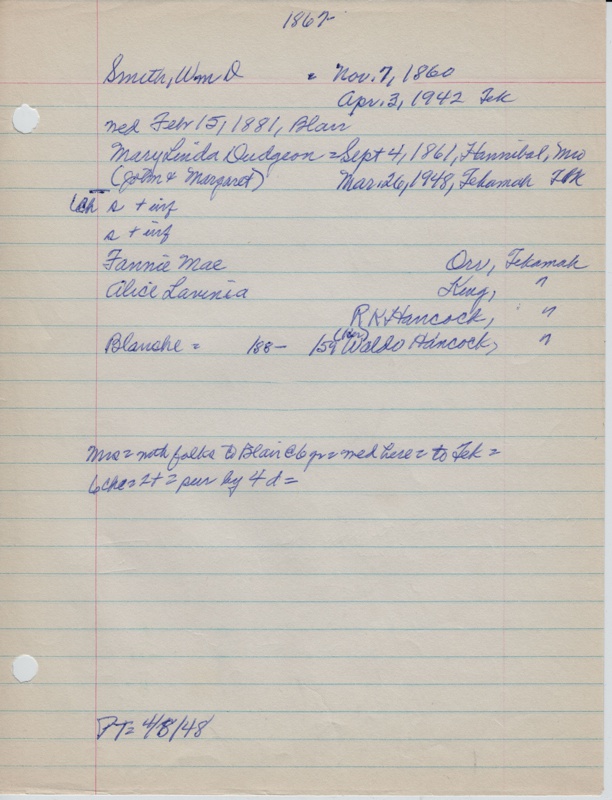 1867
Smith, Wm D = Nov. 7, 1860
Apr. 3, 1942 Tek
med Febr 15, 1881, Blair
Mary Linda Dudgeon = Sept 4, 1861, Hannibal, Mo
(John & Margaret) Mar. 26, 1948, Tekamah
6ch s + inf
s + inf
Fannie Mae Orv, Tekamah
Alice Lavinia King, "
R K Hancock, "
Blanche = 188- /59 Waldo Hancock, "
Mrs = with folks to Blair @ 6 yr = med here = to Tek =
6 che = 2+ = sur by 4 d =
PT = 4/8/48